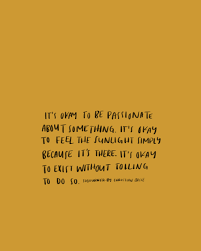 IT'S OKAY TO BE PASSIONATE
ABOUT SOMETHING. IT'S OKAY
TO FEEL THE SUNLIGHT SIMPLY
BECAUSE IT'S THERE. IT'S OKAY
TO EXIST WITHOUT TOILING
TO DO SO. BY